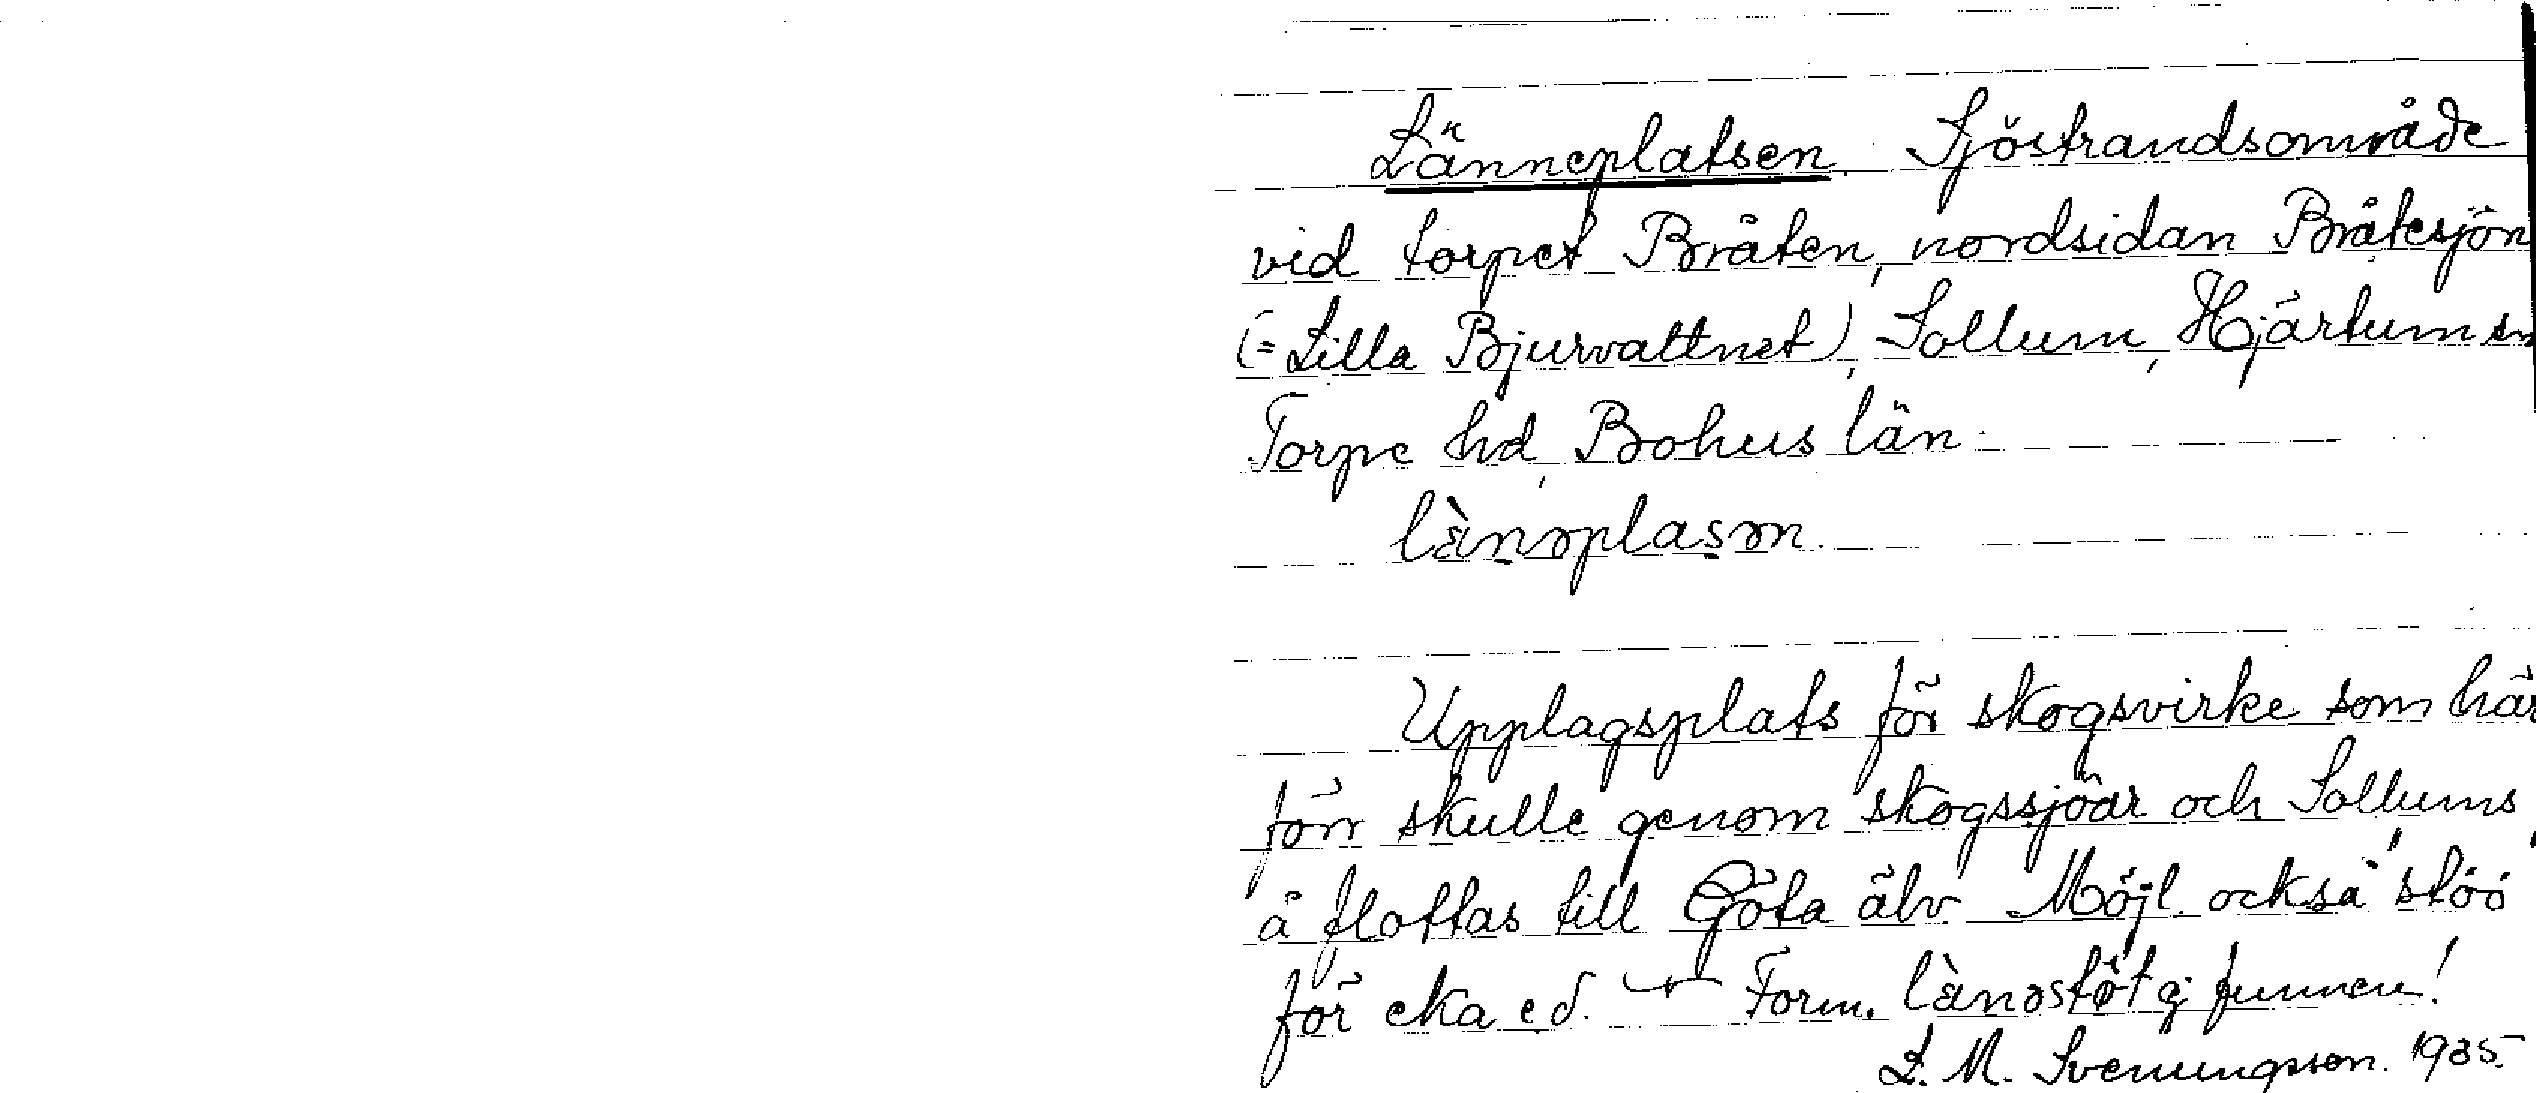 Länneplatsen. Sjöstrandsområde
vid torpet Bråten, nordsidan Bråtesjön
(= Lilla Bjurvattnet), Sollum, Hjärtum sn
Torpe hd, Bohus län.
lànəplasən.
Upplagsplats för skogsvirke som här
förr skulle genom skogssjöar och Sollums
å flottas till Göta älv. Möjl. också stöö
för eka e d. — Form. lànəstöt ej funnen!
L. M. Svenungsson. 1935.